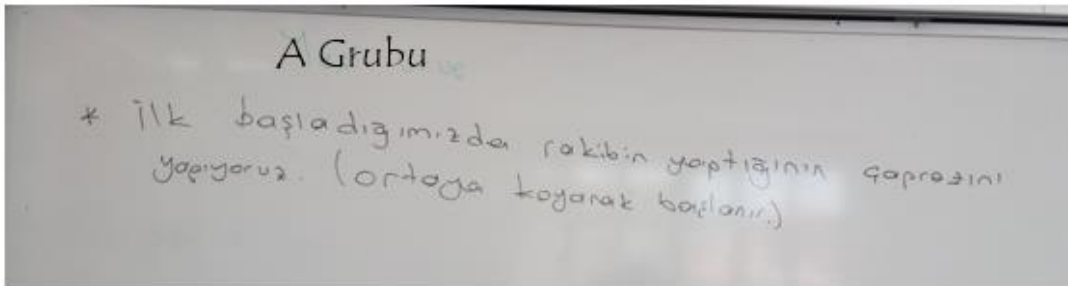 A Grubu
* İlk başladığımızda rakibin yaptığının çaprazını
yapıyoruz. (ortaya koyarak başlanır.)